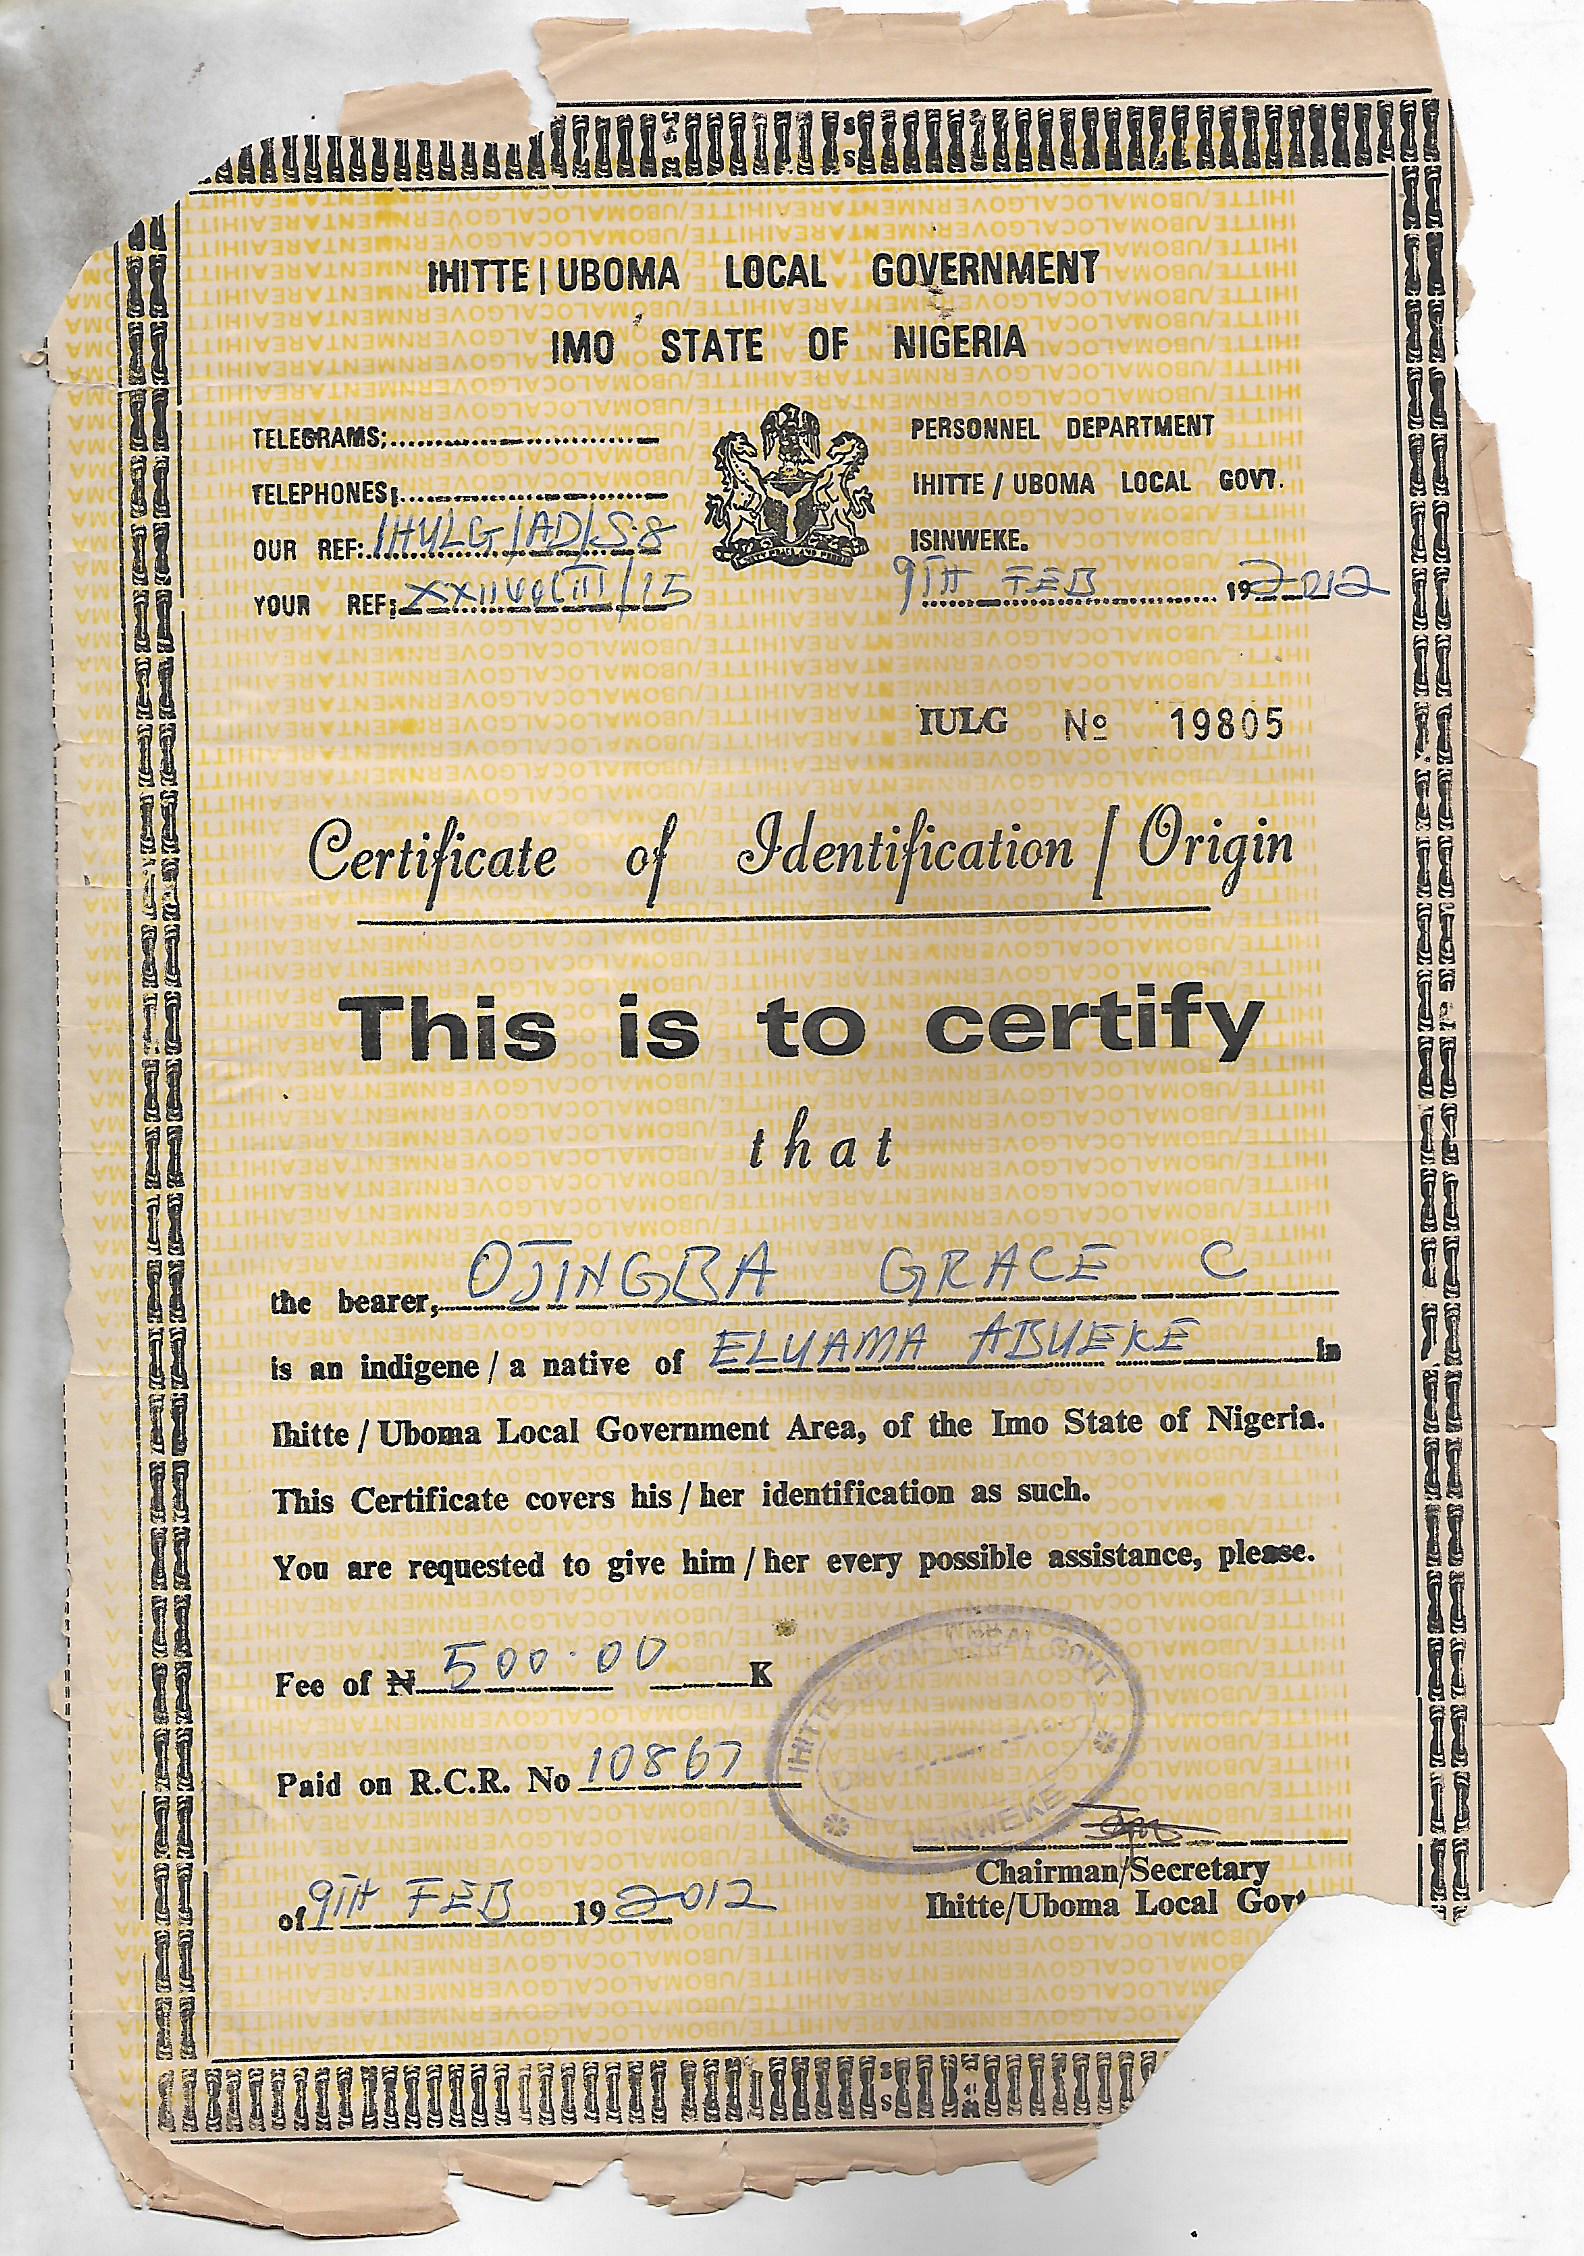 IHITTE | UBOMA LOCAL GOVERNMENT
IMO STATE OF NIGERIA
TELEGRAMS;
TELEPHONES;
OUR REF: IHULG/AD/S.8
YOUR REF; XXII Vol III/15
PERSONNEL DEPARTMENT
IHITTE / UBOMA LOCAL GOVT.
ISINWEKE.
9TH FEB 19 2012
IULG No 19805
Certificate of Identification / Origin
This is to certify
that
the bearer, OJINGBA GRACE C
is an indigene / a native of ELUAMA ABUEKE in
Ihitte / Uboma Local Government Area, of the Imo State of Nigeria.
This Certificate covers his / her identification as such.
You are requested to give him / her every possible assistance, please.
Fee of ₦ 500.00 K
Paid on R.C.R. No 10867
of 9TH FEB 19 2012
IHITTE GOVT
Chairman/Secretary
Ihitte/Uboma Local Gov